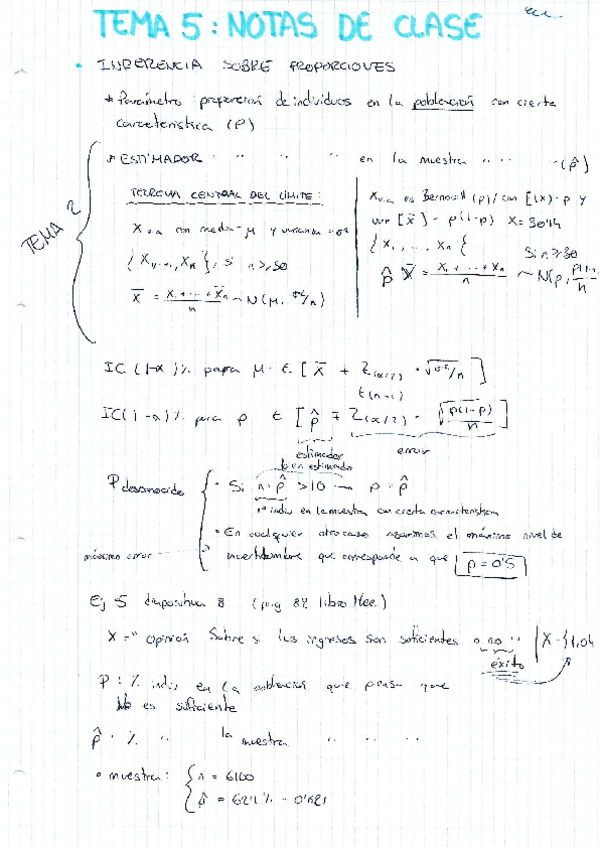 TEMA 5: NOTAS DE CLASE
• INFERENCIA SOBRE PROPORCIONES
* Parámetro proporción de individuos en la población con cierta
característica (P)
TEMA 2
* ESTIMADOR " " " en la muestra " " (p̂)
TEOREMA CENTRAL DEL LÍMITE:
X v.a con media = μ y varianza = σ²
{X₁, ..., Xₙ}, si n ≥ 30
X̄ = X₁ + ... + Xₙ / n ~ N(μ, σ²/n)
X v.a es Bernoulli (p) con E(x) = p y
var [x] = p(1-p)
{X₁, ..., Xₙ} Si n ≥ 30
p̂ X̄ = X₁ + ... + Xₙ / n ~ N(p, p(1-
IC (1-α)% para μ ∈ [X̄ ± Z(α/2) · √σ²/n]
t(n-1)
IC(1-α)% para p ∈ [p̂ ∓ Z(α/2) · √p(1-p)/n]
estimador error
bien estimado
P desconocido
• Si n·p̂ > 10 → p = p̂
nº indiv en la muestra con cierta característica
• En cualquier otro caso usaremos el máximo nivel de
máximo error
incertidumbre que corresponde a que p = 0'5
Ej 5 diapositiva 8 (pag 82 libro
X = "Opinión sobre si los ingresos son suficientes o no"
éxito
P: % indiv en la población que piensa que
no es suficiente
p̂: % " la muestra " " "
• muestra: { n = 6100
p̂ = 62'1% = 0'621